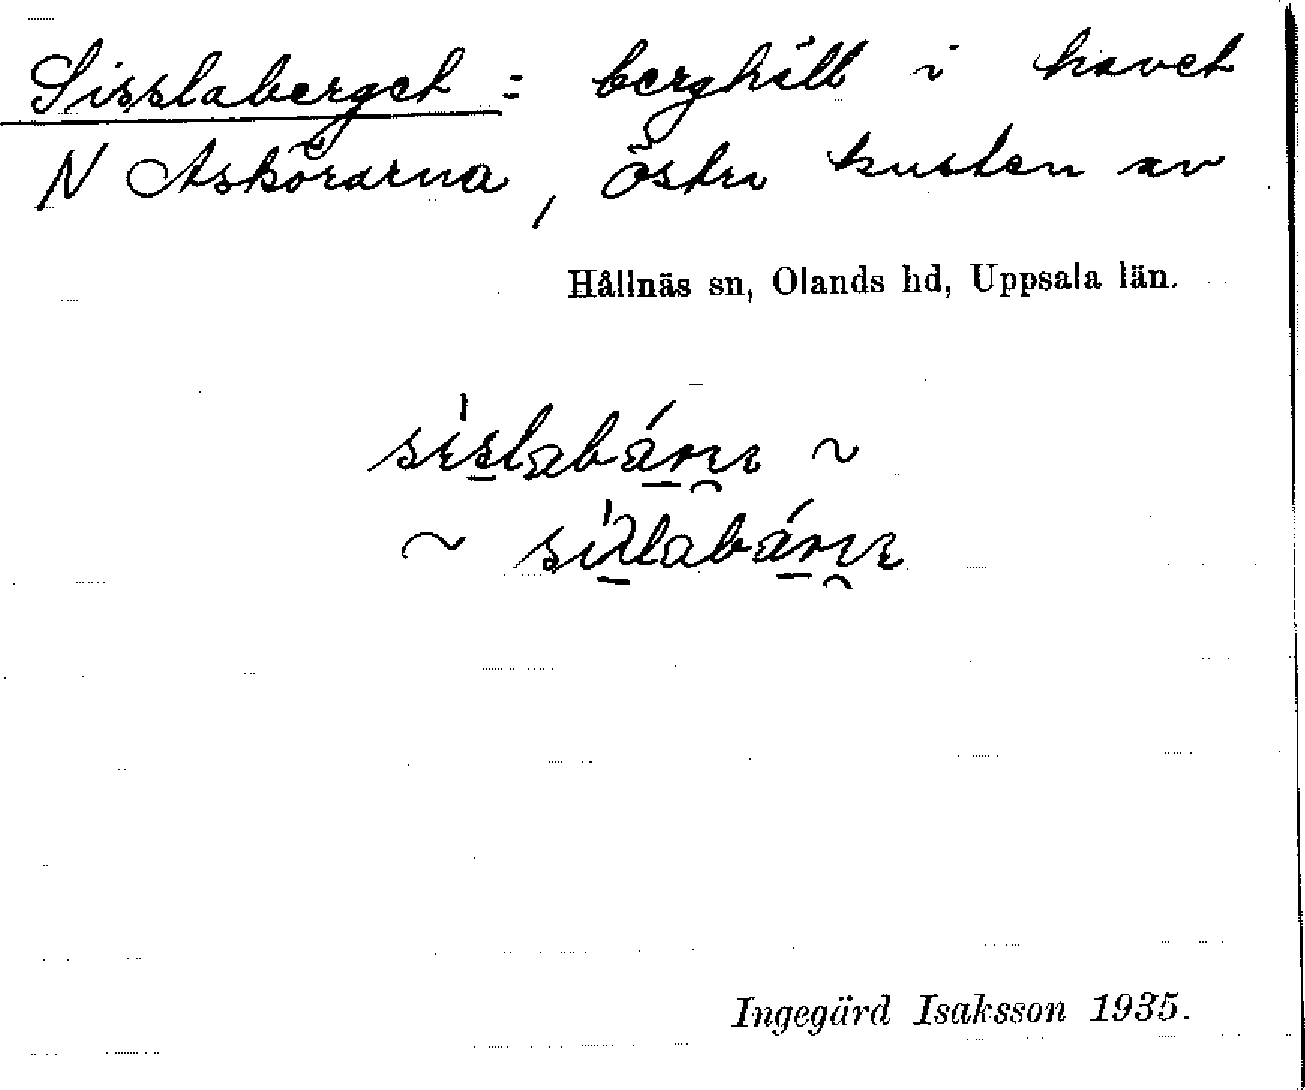 Sisslaberget = berghäll i havet
N Askörarna, östra kusten av
Hållnäs sn, Olands hd, Uppsala län.
~
~
Ingegärd Isaksson 1935.